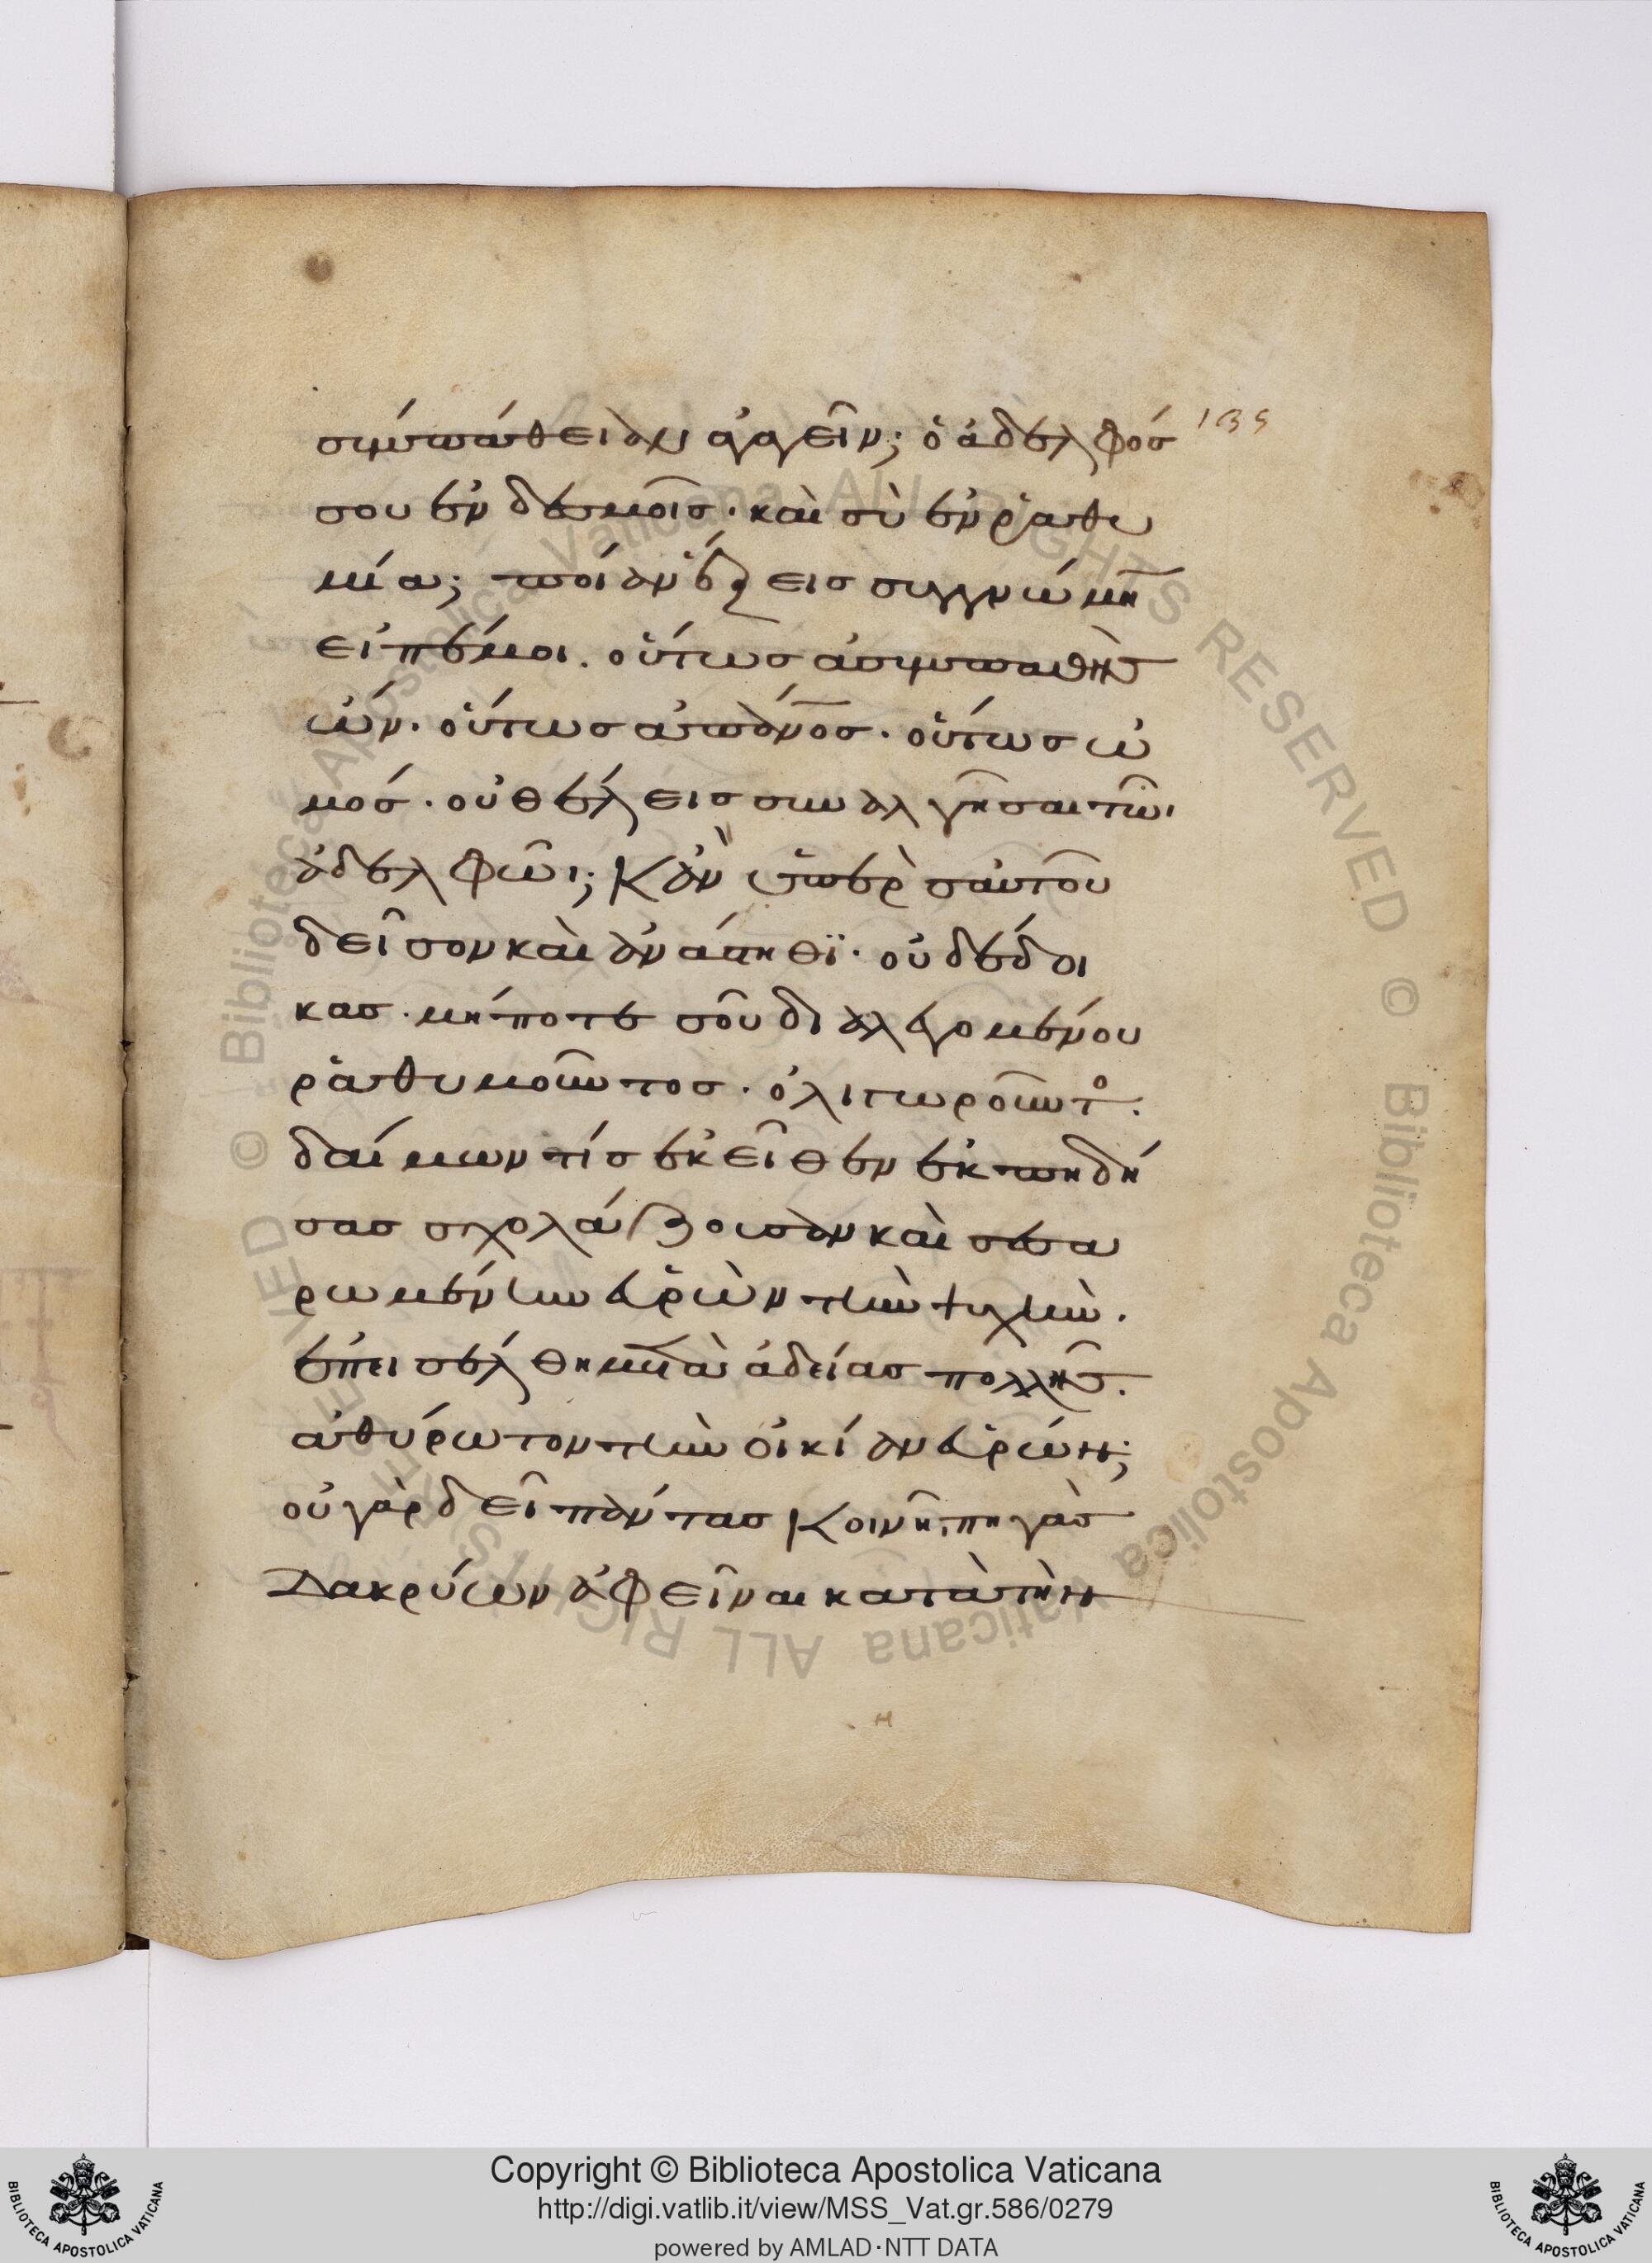 συμπάθειαν ἀγαγεῖν; ὁ ἀδελφός
135
σου ἐν δεσμοῖς· καὶ σὺ ἐν ῥαθυ
μία; ποίαν ἕξεις συγγνώμη
εἰπέ μοι. οὕτως ἀσυμπαθὴς
ὤν. οὕτως ἀπάνθ
ος. οὕτως ὠ
μός. οὐ θέλεις συναλγῆσαι τῶι
ἀδελφῶι; Κἂν ὑπὲρ σαυτοῦ
δεῖσον καὶ ἀνάστηθϊ· οὐ δέδοι
κας. μήποτε σοῦ διαλεγομένου
ῥαθυμοῦντος. ὀλιγωροῦντο.
δαίμων τίς ἐκεῖθεν ἐκπηδή
σας σχολάζουσαν καὶ σεσα
ρωμένην εὑρὼν τὴν ψυχὴν.
ἐπεισέλθη μετὰ ἀδείας πολλῆς.
ἀθύρωτον τὴν οἰκίαν εὑρών;
οὐ γὰρ δεῖ πάντας Κοινῆι πηγὰς
Δακρύων ἀφεῖναι κατὰ τὴν
Copyright © Biblioteca Apostolica Vaticana
http://digi.vatlib.it/view/MSS_Vat.gr.586/0279
powered by AMLAD·NTT DATA
BIBLIOTECA APOSTOLICA VATICANA
BIBLIOTECA APOSTOLICA VATICANA
© Biblioteca Apostolica Vaticana ALL RIGHTS RESERVED © Biblioteca Apostolica Vaticana ALL RIGHTS RESERVED